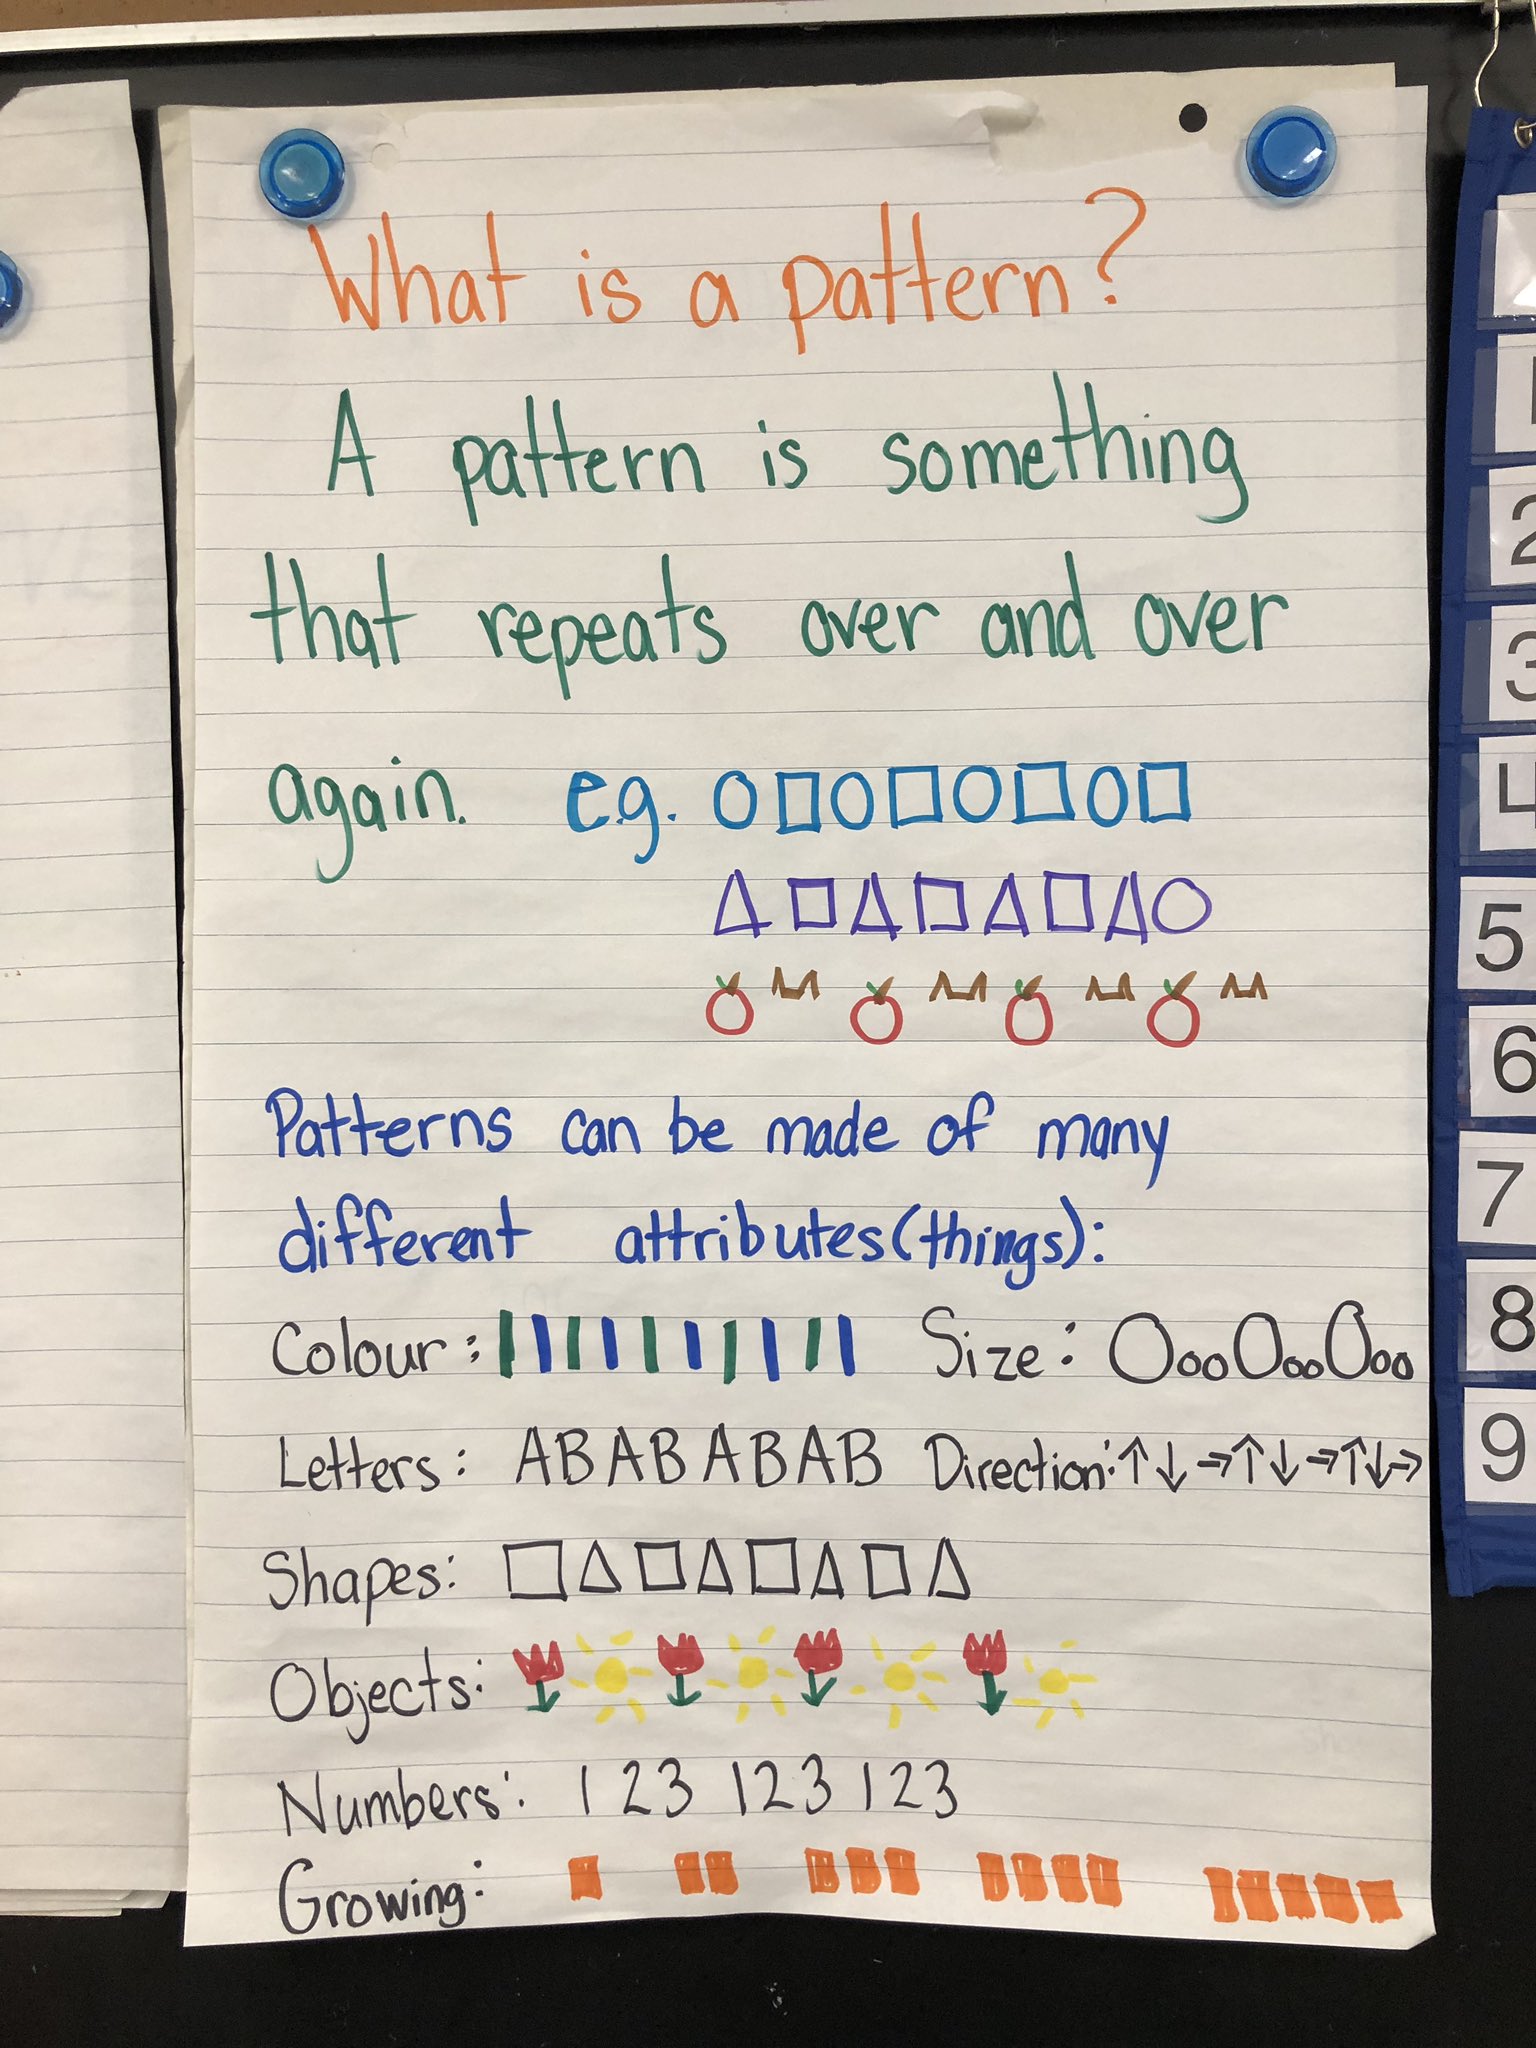 What is a pattern?
A pattern is something
that repeats over and over
again. e.g.
Patterns can be made of many
different attributes(things):
Colour: Size:
Letters: ABABABAB Direction:↑↓→↑↓→↑↓→
Shapes:
Objects:
Numbers: 123 123 123
Growing:
2
3
4
5
6
7
8
9